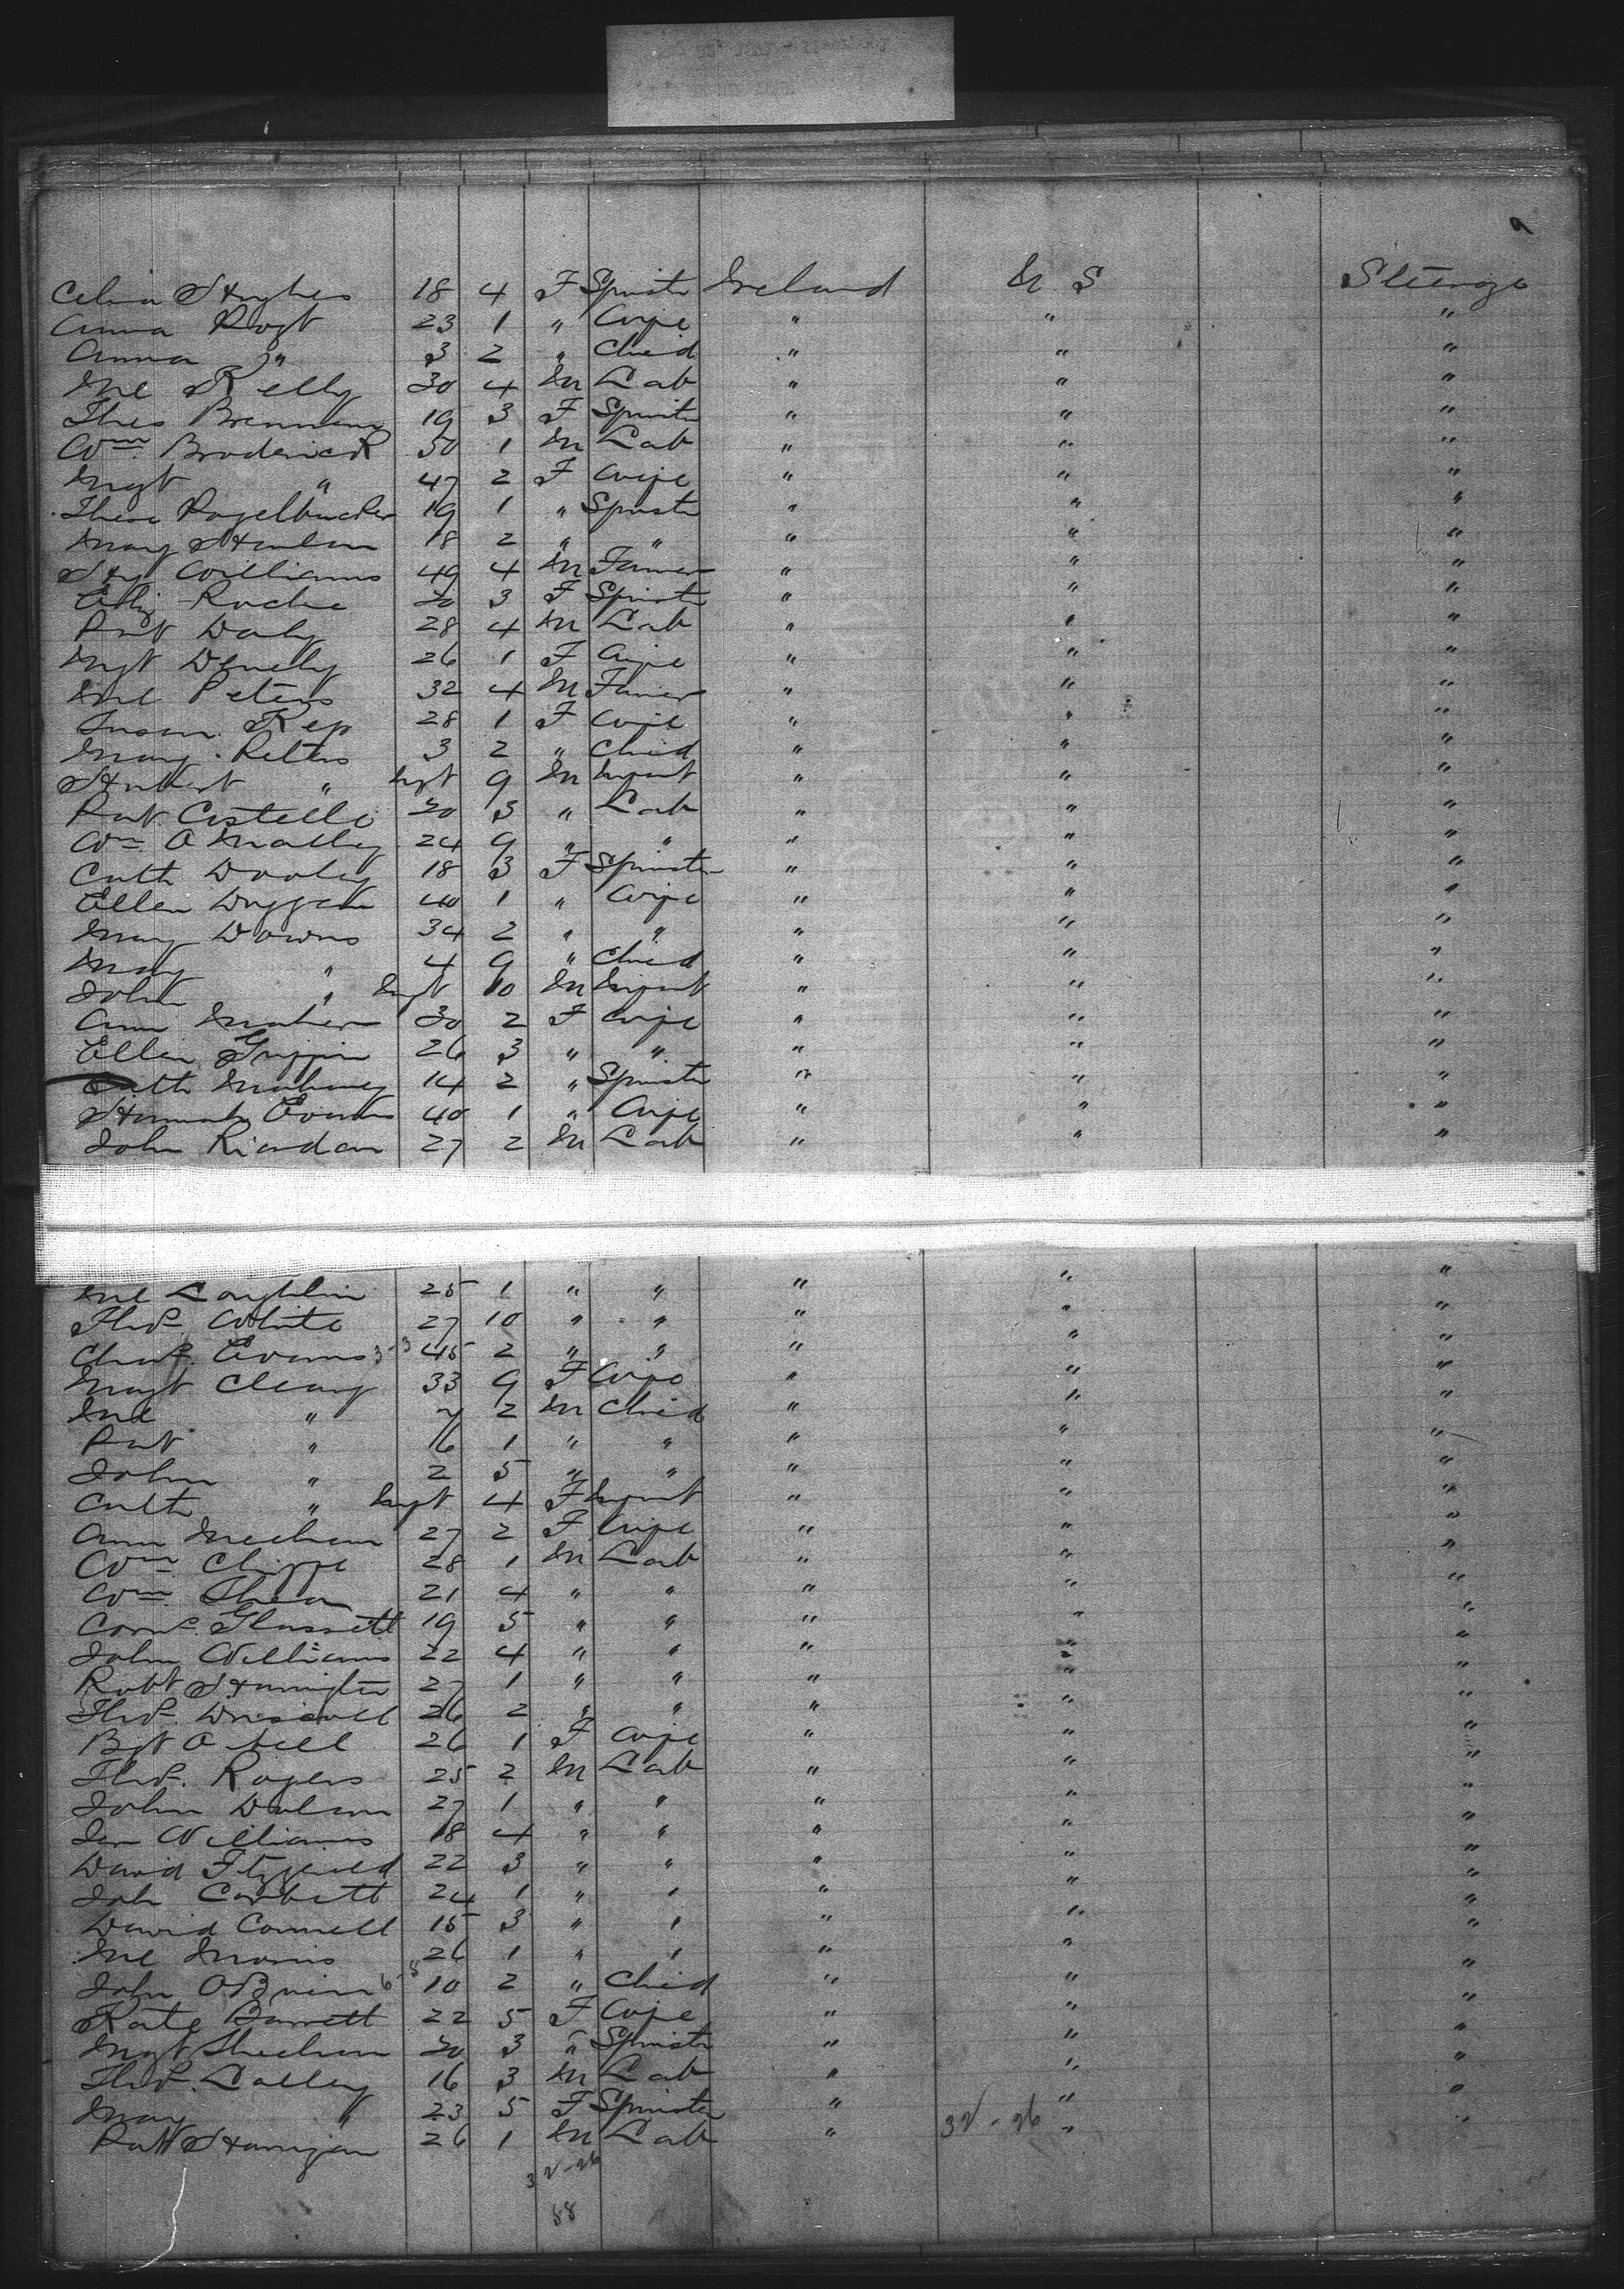 Celia Hughes 18 4 F Spinster Ireland U S Steerage
Anna Vogt 23 1 " Wife " " "
Anna " 3 2 " Child " " "
Ml Kelly 30 4 M Lab " " "
Thes Brennan 19 3 F Spinstr " " "
Wm Broderick 50 1 M Lab " " "
Mgt " 47 2 F Wife " " "
These 19 1 " Spinstr " " "
Mary Hanlon 18 2 " " " " "
Hy Williams 49 4 M Farmer " " "
Eliz Roche 20 3 F Spinstr " " "
Pat Daly 28 4 M Lab " " "
Mgt Denehy 26 1 F Wife " " "
Ml Peters 32 4 M Farmer " " "
Susan 28 1 F Wife " " "
Mary Peters 3 2 " Child " " "
Hubert " Inft 9 M Infant " " "
Pat Costello 20 3 " Lab " " "
Wm O Malley 24 9 " " " " "
Cath Dooley 18 3 F Spinster " " "
Ellen Duggan 40 1 " Wife " " "
Mary Downs 34 2 " " " " "
Mary " 4 9 " Child " " "
John " Inft 10 M Infant " " "
Ann Maher 30 2 F Wife " " "
Ellen Griffin 26 3 " " " " "
Cath Mahoney 14 2 " Spinstr " " "
Hannah Evans 40 1 " Wife " " "
John Riordan 27 2 M Lab " " "
Ml Loughlin 25 1 " " " " "
Thos. White 27 10 " " " " "
Chas. Evans 3-3 45 2 " " " " "
Mgt Cleary 33 9 F Wife " " "
Ml " 7 2 M Child " " "
Pat " 6 1 " " " " "
John " 2 5 " " " " "
Cath " Inft 4 F Infant " " "
Ann Meehan 27 2 F Wife " " "
Wm Cliffe 28 1 M Lab " " "
Wm Shea 21 4 " " " " "
Corns. Glassett 19 5 " " " " "
John Williams 22 4 " " " " "
Robt Harrington 27 1 " " " " "
Thos. Driscoll 26 2 " " " " "
Bgt O Neill 26 1 F Wife " " "
Thos. Rogers 25 2 M Lab " " "
John Dolan 27 1 " " " " "
Jas Williams 18 4 " " " " "
David Fitzgerald 22 3 " " " " "
John Corbett 24 1 " " " " "
David Connell 15 3 " " " " "
Ml Morris 26 1 " " " " "
John OBrien 10 2 " Child " " "
Kate Barrett 22 5 F Wife " " "
Mgt Sheehan 20 3 " Spinstr " " "
Thos. Lalley 16 3 M Lab " " "
Mary " 23 5 F Spinster " " "
Patk Hannigan 26 1 M Lab " 32-26 " "
32-26
58